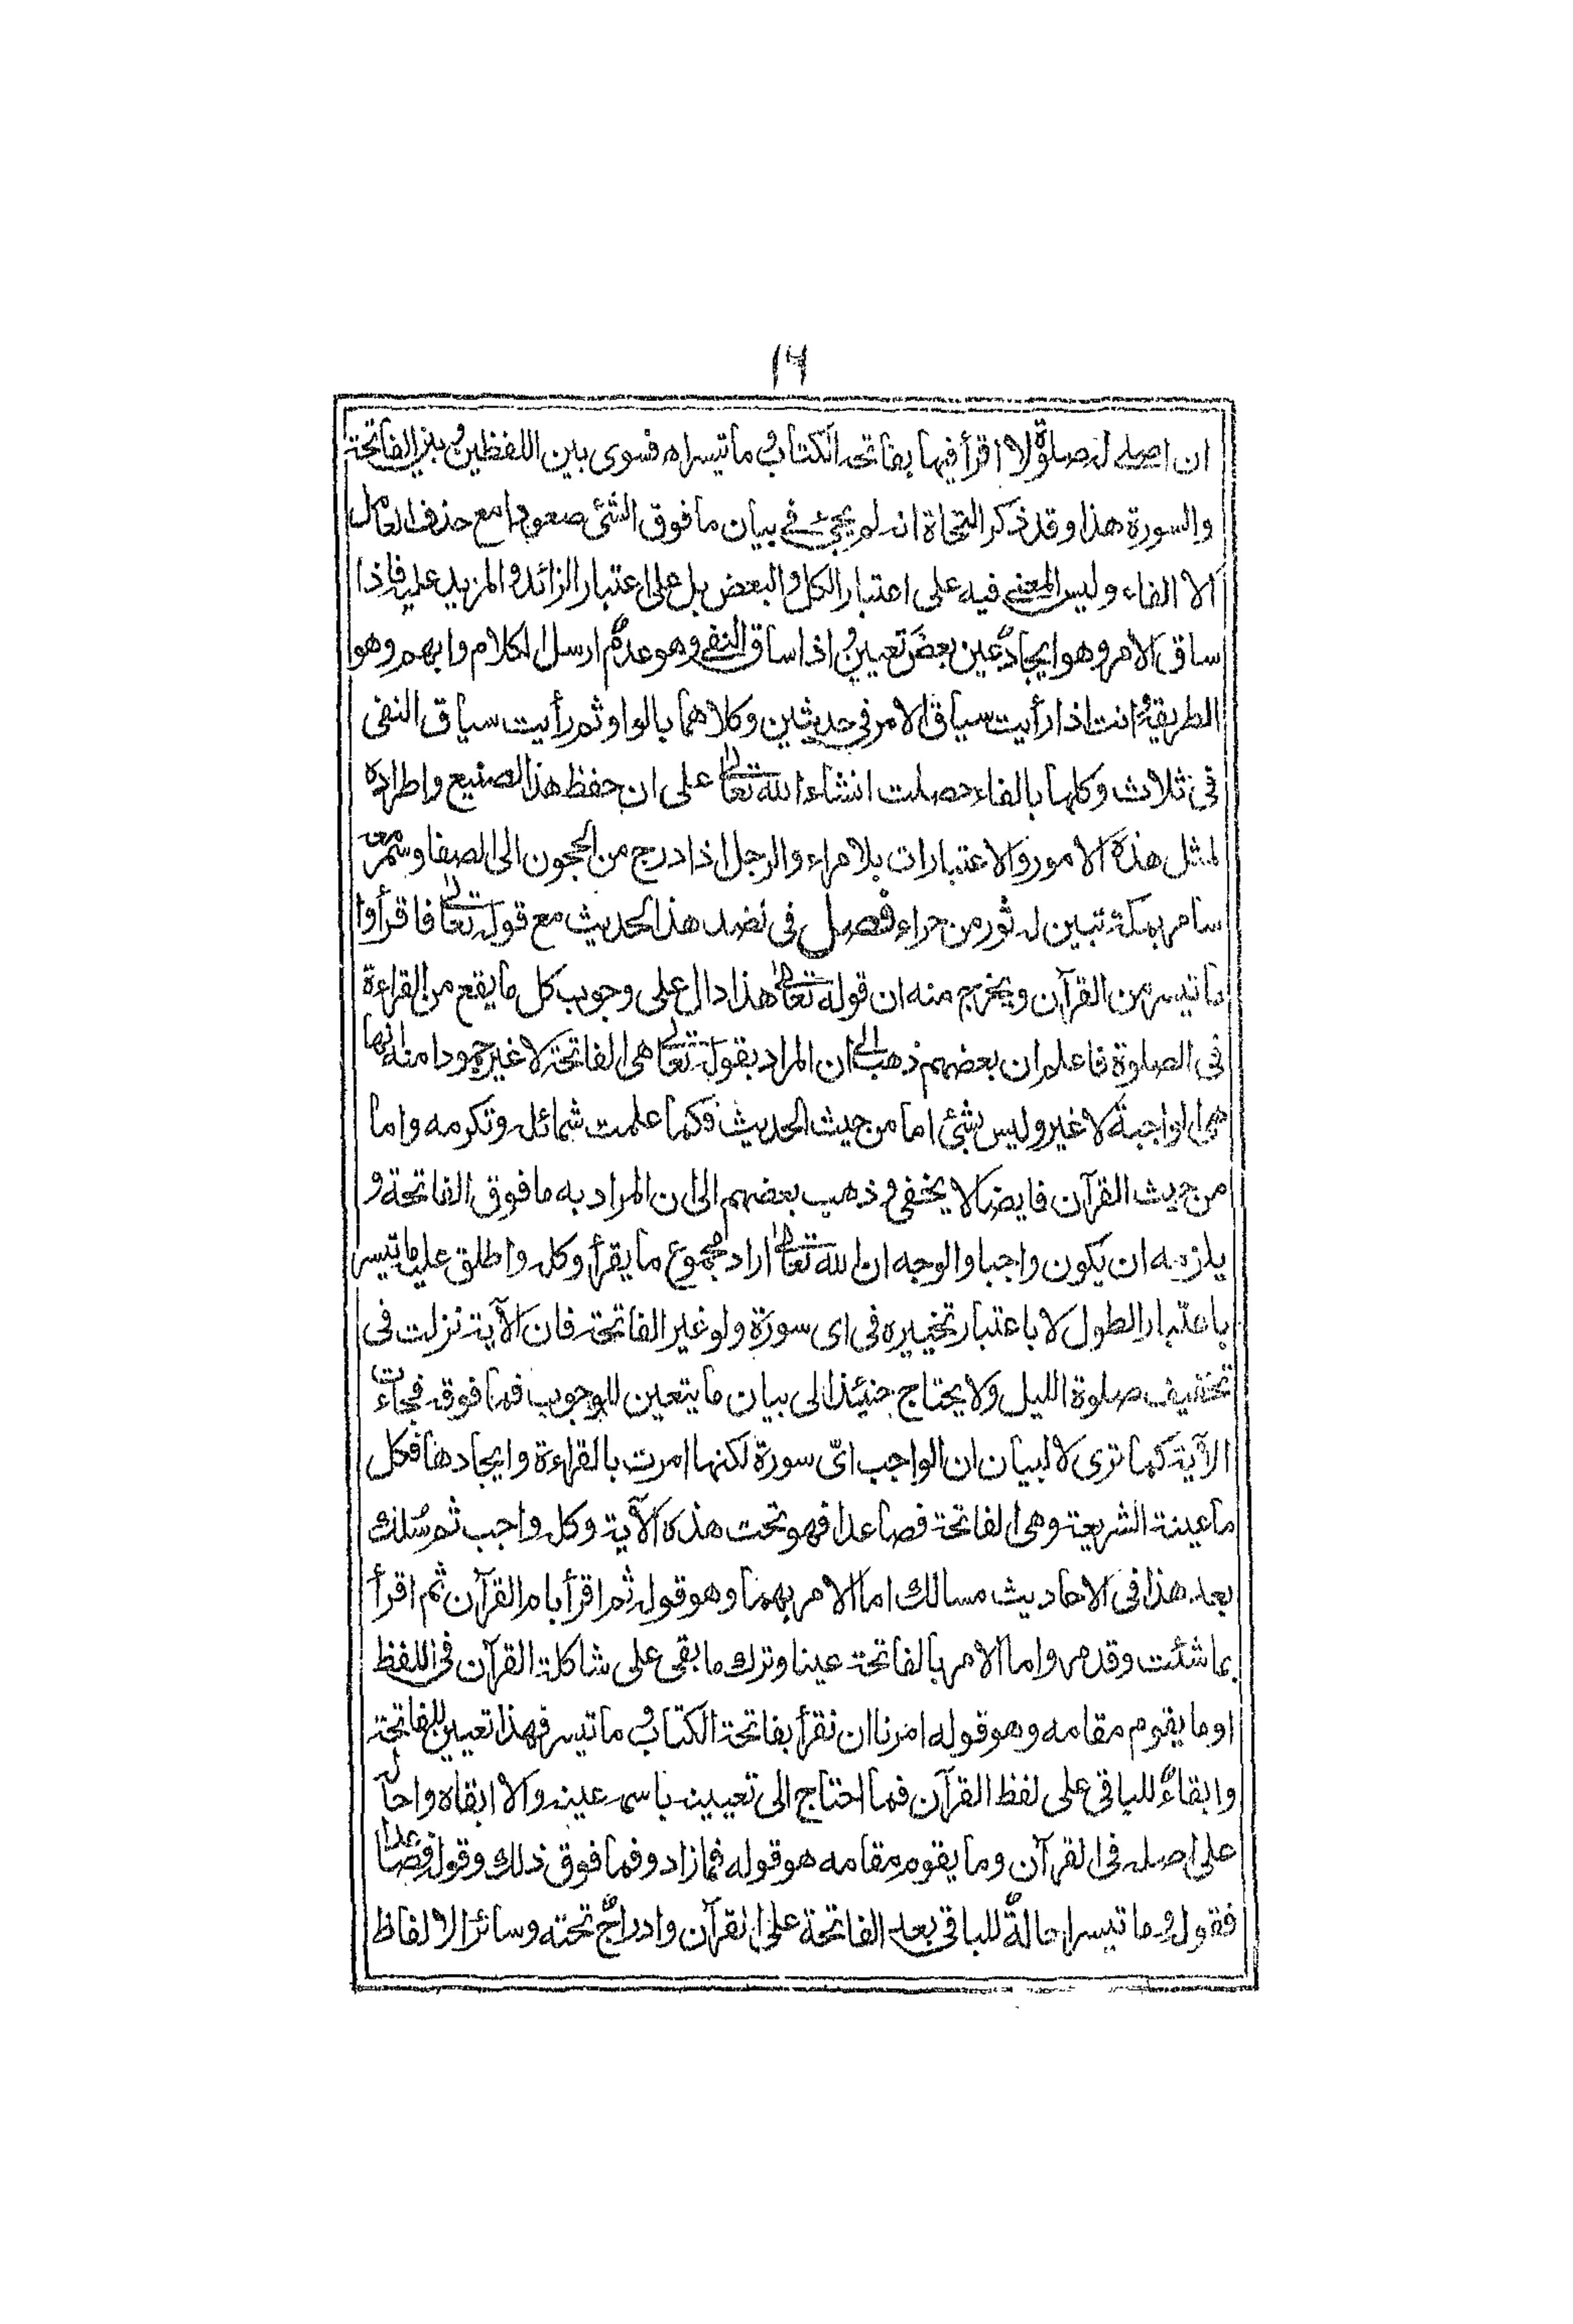 ١٦
ان اصلي له صلوة لا اقرأ فيها بفاتحة الكتاب وما تيسر اه فسوى بين اللفظين وبين الفاتحة
والسورة هذا وقد ذكر النحاة انه لم يجئ في بيان ما فوق الشئ صعودا مع حذف العامل
الا الفاء وليس المعنى فيه على اعتبار الكل والبعض بل على اعتبار الزائد والمزيد عليه فاذا
ساق الامر وهو ايجاد عين بعض تعيين واذا ساق النفي وهو عدم ارسل الكلام وابهم وهو
الطريقة وانت اذا رأيت سياق الامر في حديثين وكلاهما بالواو ثم رأيت سياق النفي
في ثلاث وكلها بالفاء حصلت انشاء الله تعالى على ان حفظ هذا الصنيع واطراده
لمثل هذه الامور والاعتبارات بلا مراء والرجل اذا درج من الحجون الى الصفا وسمر مع
سامر بمكة تبين له ثور من حراء فصل في نضد هذا الحديث مع قوله تعالى فاقرأوا
ما تيسر من القرآن ويخرج منه ان قوله تعالى هذا دال على وجوب كل ما يقع من القراءة
في الصلوة فاعلم ان بعضهم ذهب الى ان المراد بقوله تعالى هي الفاتحة لا غير جمودا منه انها
هي الواجبة لا غير وليس بشئ اما من حيث الحديث فكما علمت شمائله وتكرمه واما
من حيث القرآن فايضا لا يخفى وذهب بعضهم الى ان المراد به ما فوق الفاتحة و
يلزمه ان يكون واجبا والوجه ان الله تعالى اراد مجموع ما يقرأ وكله واطلق عليه ما تيسر
باعتبار الطول لا باعتبار تخييره في اى سورة ولو غير الفاتحة فان الآية نزلت في
تخفيف صلوة الليل ولا يحتاج حنيئذ الى بيان ما يتعين للوجوب فما فوقه فجاءت
الآية كما ترى لا لبيان ان الواجب اىّ سورة لكنها امرت بالقراءة وايجادها فكل
ما عينة الشريعة وهي الفاتحة فصاعدا فهو تحت هذه الآية وكله واجب ثم سُلك
بعد هذا في الاحاديث مسالك اما الامر بهما وهو قوله ثم اقرأ بام القرآن ثم اقرأ
بما شئت وقد مر واما الامر بالفاتحة عينا وترك ما بقى على شاكلة القرآن في اللفظ
او ما يقوم مقامه وهو قوله امرنا ان نقرأ بفاتحة الكتاب وما تيسر فهذا تعيين للفاتحة
وابقاءٌ للباقي على لفظ القرآن فما احتاج الى تعيينه باسم عينه والا ابقاه واحاله
على اصله في القرآن وما يقوم مقامه هو قوله فما زاد وفما فوق ذلك وقوله فصاعدا
فقوله وما تيسر احالةٌ للباقي بعد الفاتحة على القرآن وادراجٌ تحته وسائر الالفاظ